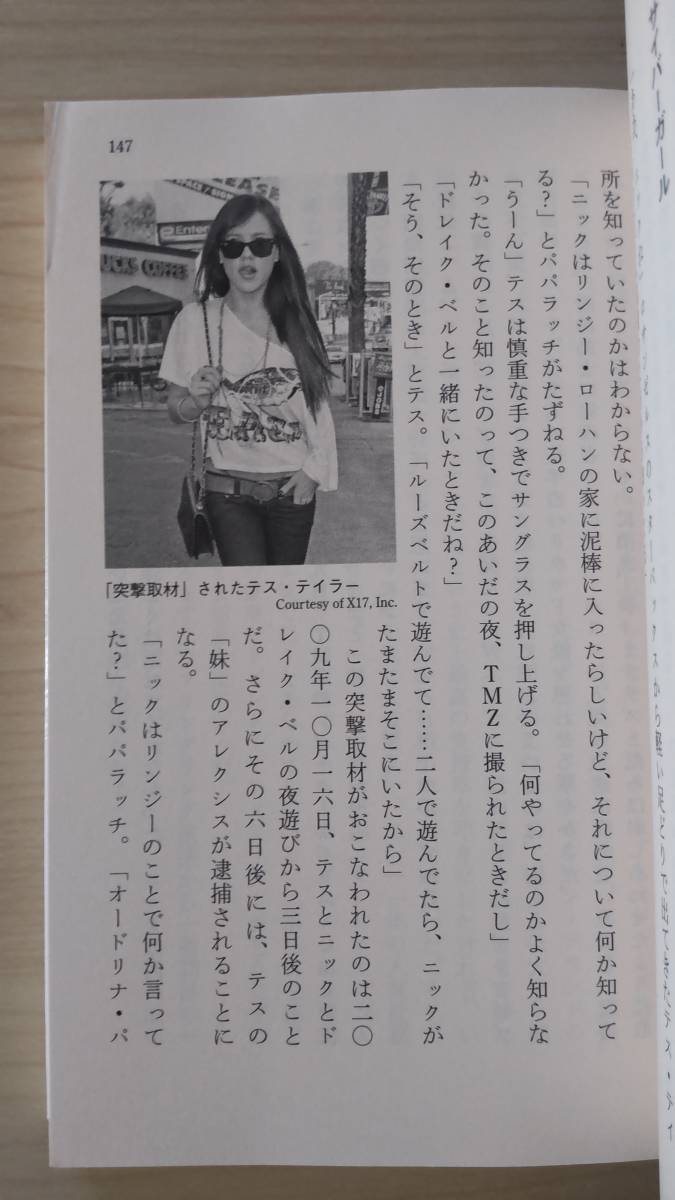 サイバーガール
所を知っていたのかはわからない。
「ニックはリンジー・ローハンの家に泥棒に入ったらしいけど、それについて何か知って
る?」とパパラッチがたずねる。
「うーん」テスは慎重な手つきでサングラスを押し上げる。「何やってるのかよく知らな
かった。そのこと知ったのって、このあいだの夜、TMZに撮られたときだし」
「ドレイク・ベルと一緒にいたときだね?」
「そう、そのとき」とテス。「ルーズベルトで遊んでて……二人で遊んでたら、ニックが
たまたまそこにいたから」
この突撃取材がおこなわれたのは二〇
〇九年一〇月一六日、テスとニックとド
レイク・ベルの夜遊びから三日後のこと
だ。さらにその六日後には、テスの
「妹」のアレクシスが逮捕されることに
なる。
「ニックはリンジーのことで何か言って
た?」とパパラッチ。「オードリナ・パ
「突撃取材」されたテス・テイラー
Courtesy of X17, Inc.
147
LEASE
UCKS COFFEE